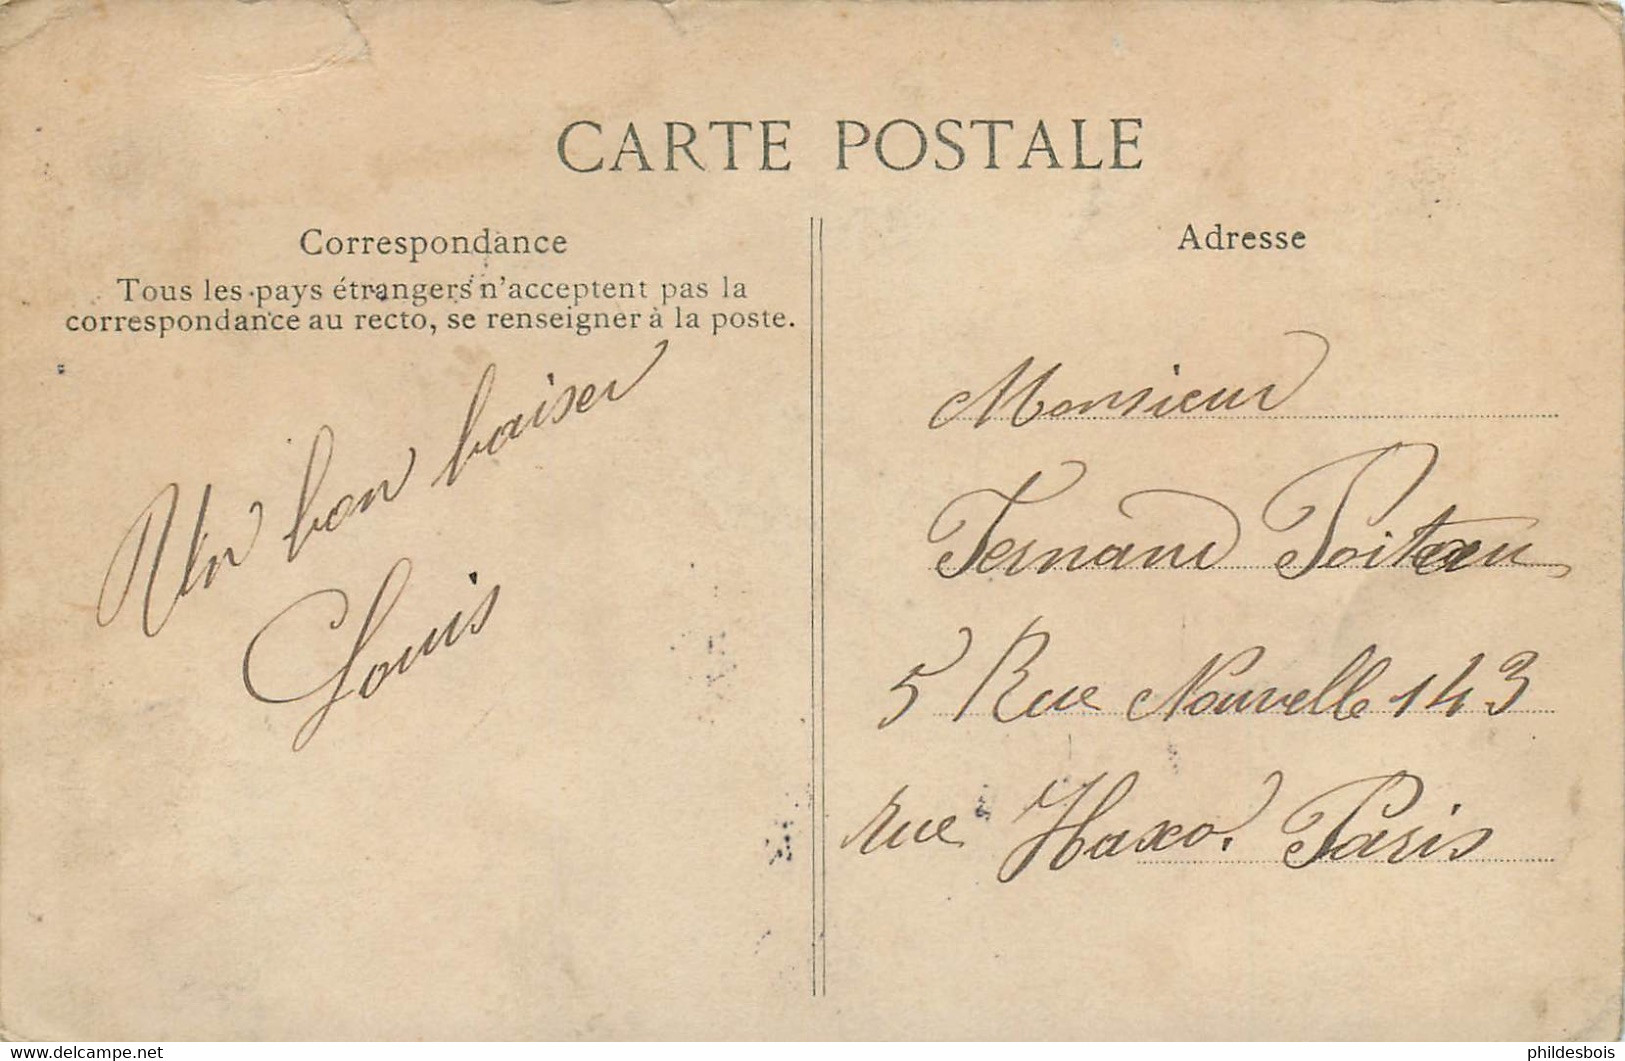 CARTE POSTALE
Correspondance
Tous les pays étrangers n'acceptent pas la
correspondance au recto, se renseigner à la poste.
Un bon baiser
Louis
Adresse
Monsieur
Fernand
5 Rue Nouvelle 143
rue Haxo. Paris
https://www.delcampe.net
phildesbois